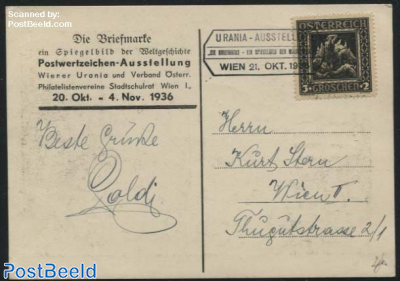 Scanned by
PostBeeld
Die Briefmarke
ein Spiegelbild der Weltgeschichte
Postwertzeichen-Ausstellung
Wiener Urania und Verband Österr.
Philatelistenvereine Stadtschulrat Wien I.,
20. Okt. - 4. Nov. 1936
URANIA - AUSSTELL
DIE BRIEFMARKE - EIN SPIEGELBILD DER
WIEN 21. OKT. 19
ÖSTERREICH
3 GROSCHEN 2
Beste Grüsse
Poldi
Herrn
Kurt Stern
Wien II.
Thugutstrasse 2/1
PostBeeld
PostBeeld